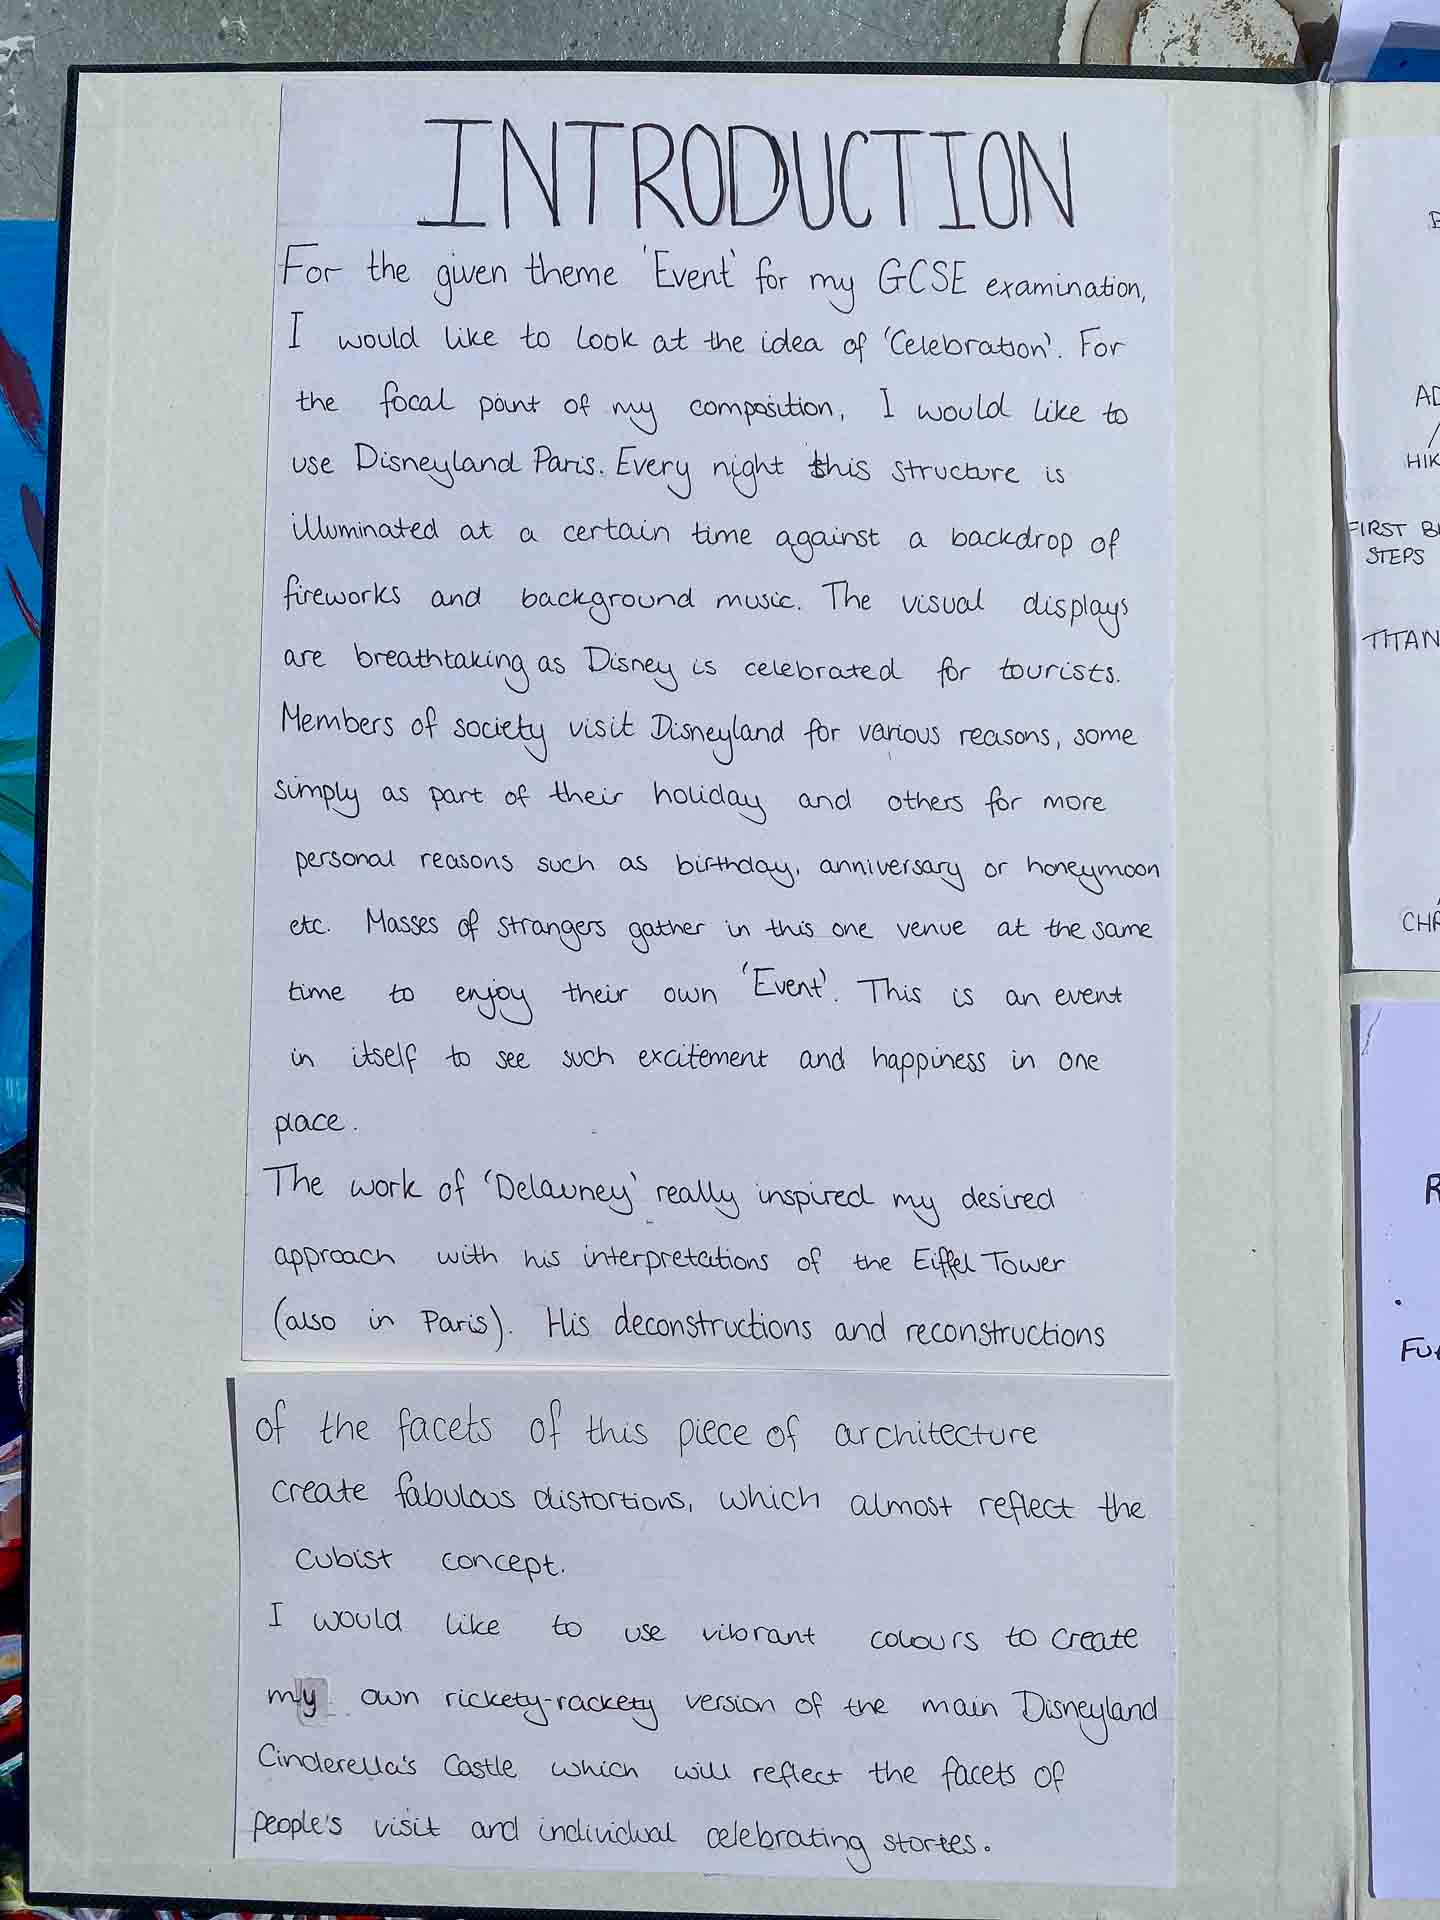 INTRODUCTION
For the given theme 'Event' for my GCSE examination,
I would like to look at the idea of 'Celebration'. For
the focal point of my composition, I would like to
use Disneyland Paris. Every night this structure is
illuminated at a certain time against a backdrop of
fireworks and background music. The visual displays
are breathtaking as Disney is celebrated for tourists.
Members of society visit Disneyland for various reasons, some
simply as part of their holiday and others for more
personal reasons such as birthday, anniversary or honeymoon
etc. Masses of strangers gather in this one venue at the same
time to enjoy their own 'Event'. This is an event
in itself to see such excitement and happiness in one
place.
The work of 'Delauney' really inspired my desired
approach with his interpretations of the Eiffel Tower
(also in Paris). His deconstructions and reconstructions
of the facets of this piece of architecture
create fabulous distortions, which almost reflect the
cubist concept.
I would like to use vibrant colours to create
my own rickety-rackety version of the main Disneyland
Cinderella's Castle which will reflect the facets of
people's visit and individual celebrating stories.
FIRST
STEPS